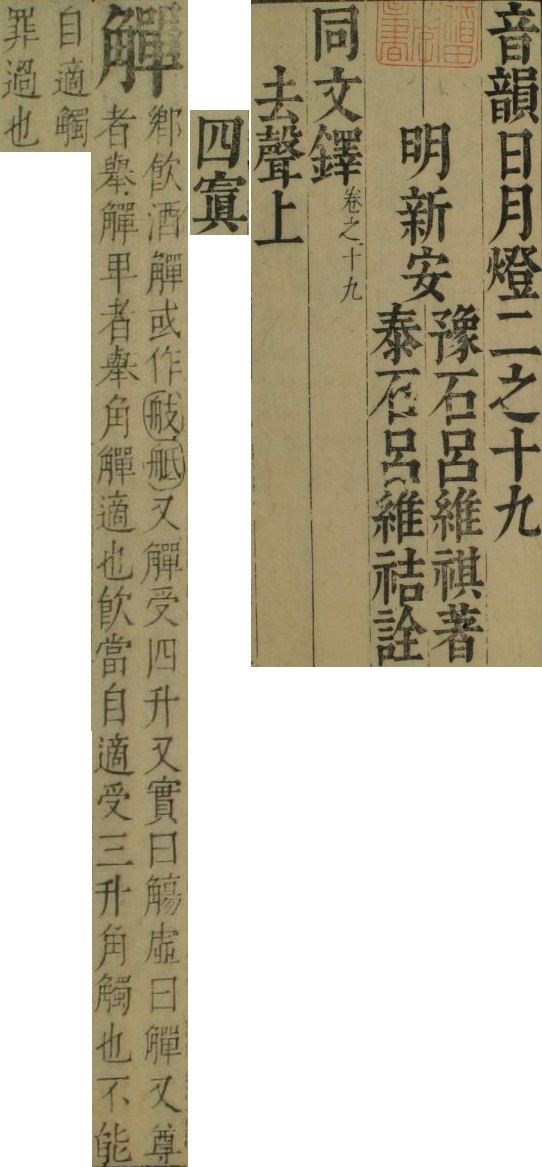 音韻日月燈二之十九
明新安
豫石呂維祺著
泰石呂維祮詮
同文鐸卷之十九
去聲上
四寘
觶
鄉飲酒觶或作觗又觶受四升又實曰觴虛曰觶又尊
者舉觶卑者舉角觶適也飲當自適受三升角觸也不能
自適觸
罪過也